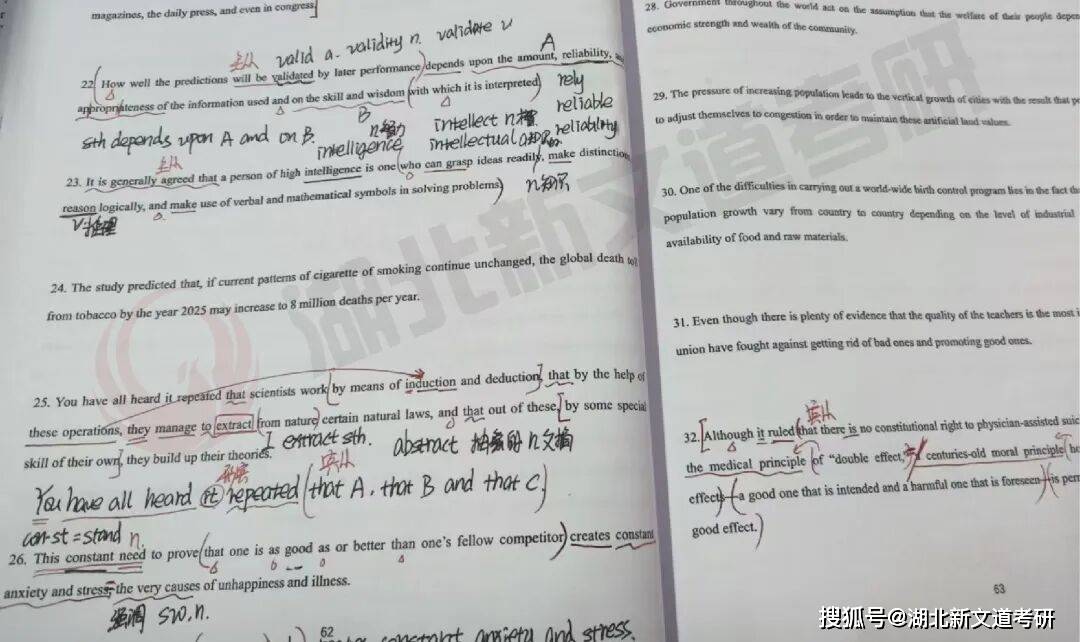 magazines, the daily press, and even in congress.
valid a. validity n. validate v
主从 A
22 How well the predictions will be validated by later performance depends upon the amount, reliability,
appropriateness of the information used and on the skill and wisdom with which it is interpreted
rely
B
reliable
sth depends upon A and on B. n智力 intellect n
intelligence intellectual a reliability
主从
23. It is generally agreed that a person of high intelligence is one who can grasp ideas readily, make distinction
reason logically, and make use of verbal and mathematical symbols in solving problems n知识
v推理
24. The study predicted that, if current patterns of cigarette of smoking continue unchanged, the global death
from tobacco by the year 2025 may increase to 8 million deaths per year.
25. You have all heard it repeated that scientists work by means of induction and deduction, that by the help of
these operations, they manage to extract from nature certain natural laws, and that out of these, by some special
skill of their own, they build up their theories. extract sth. abstract 抽象的 n文摘
宾从
You have all heard it repeated (that A, that B and that C.)
con-st = stand n.
26. This constant need to prove that one is as good as or better than one's fellow competitor creates constant
anxiety and stress, the very causes of unhappiness and illness.
强调 sw.n.
62
constant anxiety and stress.
28. Government throughout the world act on the assumption that the welfare of their people
economic strength and wealth of the community.
29. The pressure of increasing population leads to the vertical growth of cities with the result that
to adjust themselves to congestion in order to maintain these artificial land values.
30. One of the difficulties in carrying out a world-wide birth control program lies in the fact
population growth vary from country to country depending on the level of industrial
availability of food and raw materials.
31. Even though there is plenty of evidence that the quality of the teachers is the most
union have fought against getting rid of bad ones and promoting good ones.
宾从
32. Although it ruled that there is no constitutional right to physician-assisted
the medical principle of "double effect," centuries-old moral principle
effects a good one that is intended and a harmful one that is foreseen is
good effect.
63
湖北新文道考研
搜狐号@湖北新文道考研